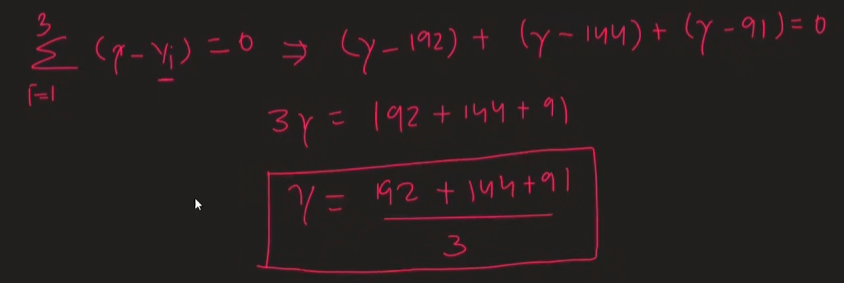 3
Σ (γ - γi) = 0 ⇒ (γ - 192) + (γ - 144) + (γ - 91) = 0
i=1
3γ = 192 + 144 + 91
γ = 192 + 144 + 91
3